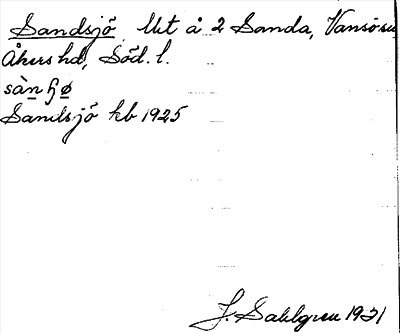 Sandsjö, Utt å 2 Sanda, Vansö sn
Åkers hd, Söd. l.
Sandsjö kb 1925
J. Sahlgren 1931